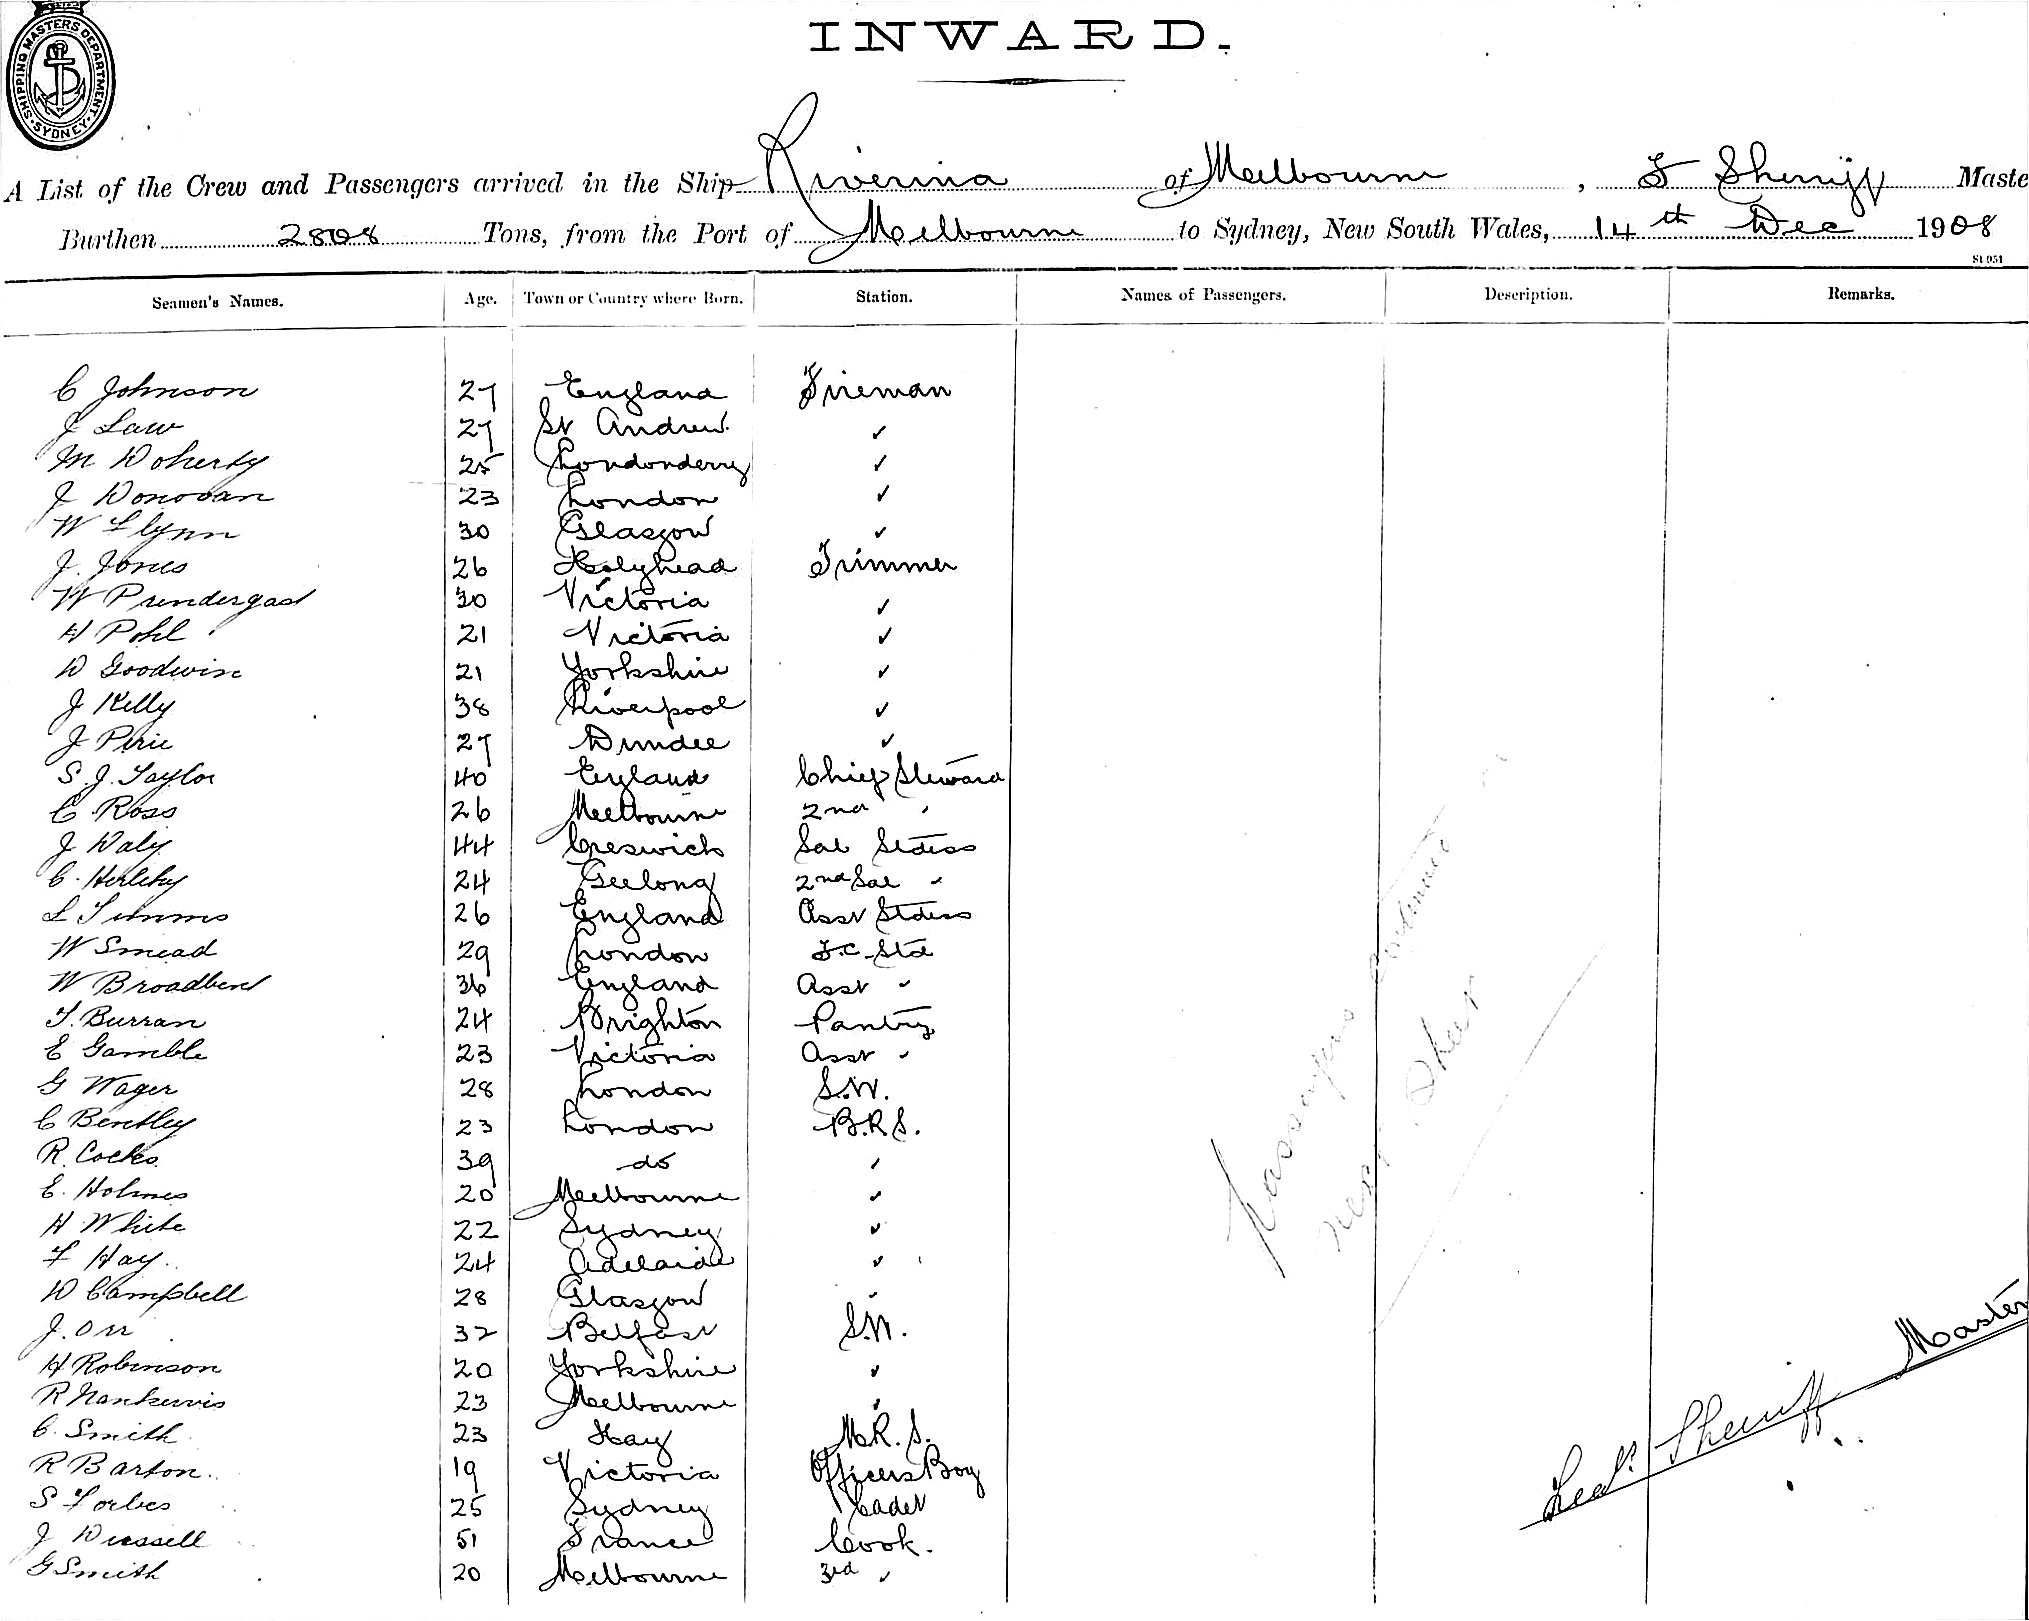 SHIPPING MASTERS DEPARTMENT. SYDNEY
INWARD.
A List of the Crew and Passengers arrived in the Ship Riverina of Melbourne, F Sherriff Maste
Burthen 2808 Tons, from the Port of Melbourne to Sydney, New South Wales, 14th Dec 1908
St 951
Seamen's Names. Age. Town or Country where Born. Station. Names of Passengers. Description. Remarks.
C Johnson 27 England Fireman
J Law 27 St Andrew ✓
M Doherty 25 Londonderry ✓
J Donovan 23 London ✓
W Flynn 30 Glasgow ✓
J. Jones 26 Holyhead Trimmer
W Prendergast 30 Victoria ✓
H Pohl 21 Victoria ✓
D Goodwin 21 Yorkshire ✓
J Kelly 38 Liverpool ✓
J Pirie 27 Dundee ✓
S. J. Taylor 40 England Chief Steward
C. Ross 26 Melbourne 2nd "
J Daly 44 Creswick Sal Stdess
C. Herlihy 24 Geelong 2nd Sal "
L Timms 26 England Asst Stdess
W Smead 29 London F.C. Std
W Broadbent 36 England Asst "
T. Burran 24 Brighton Pantry
E Gamble 23 Victoria Asst "
G Wager 28 London S.W.
C Bentley 23 London B.R.S.
R. Cocks 39 do "
E. Holmes 20 Melbourne "
H White 22 Sydney "
F Hay 24 Adelaide "
D Campbell 28 Glasgow "
J. Orr 32 Belfast S.W.
H Robinson 20 Yorkshire "
R Nankervis 23 Melbourne "
C. Smith 23 Hay M.R.S.
R Barton 19 Victoria Officers Boy
S Forbes 25 Sydney Cadet
J Diessell 51 France Cook.
G Smith 20 Melbourne 3rd "
Passengers Continued on
next Sheet
Fredk Sherriff Master